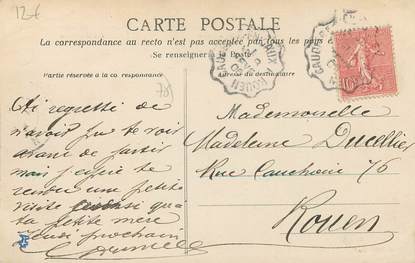 12€
CARTE POSTALE
La correspondance au recto n'est pas acceptée par tous les pays
Se renseigner à la Poste
Partie réservée à la correspondance
Adresse du destinataire
78
ROUEN
Ai regretté de
n'avoir pu te voir
avant de partir
mais j'espère te
rendre une petite
visite qu'à
ta petite mère
Jeudi prochain
Mademoiselle
Madeleine Ducellier
Rue Cauchoise 76
Rouen